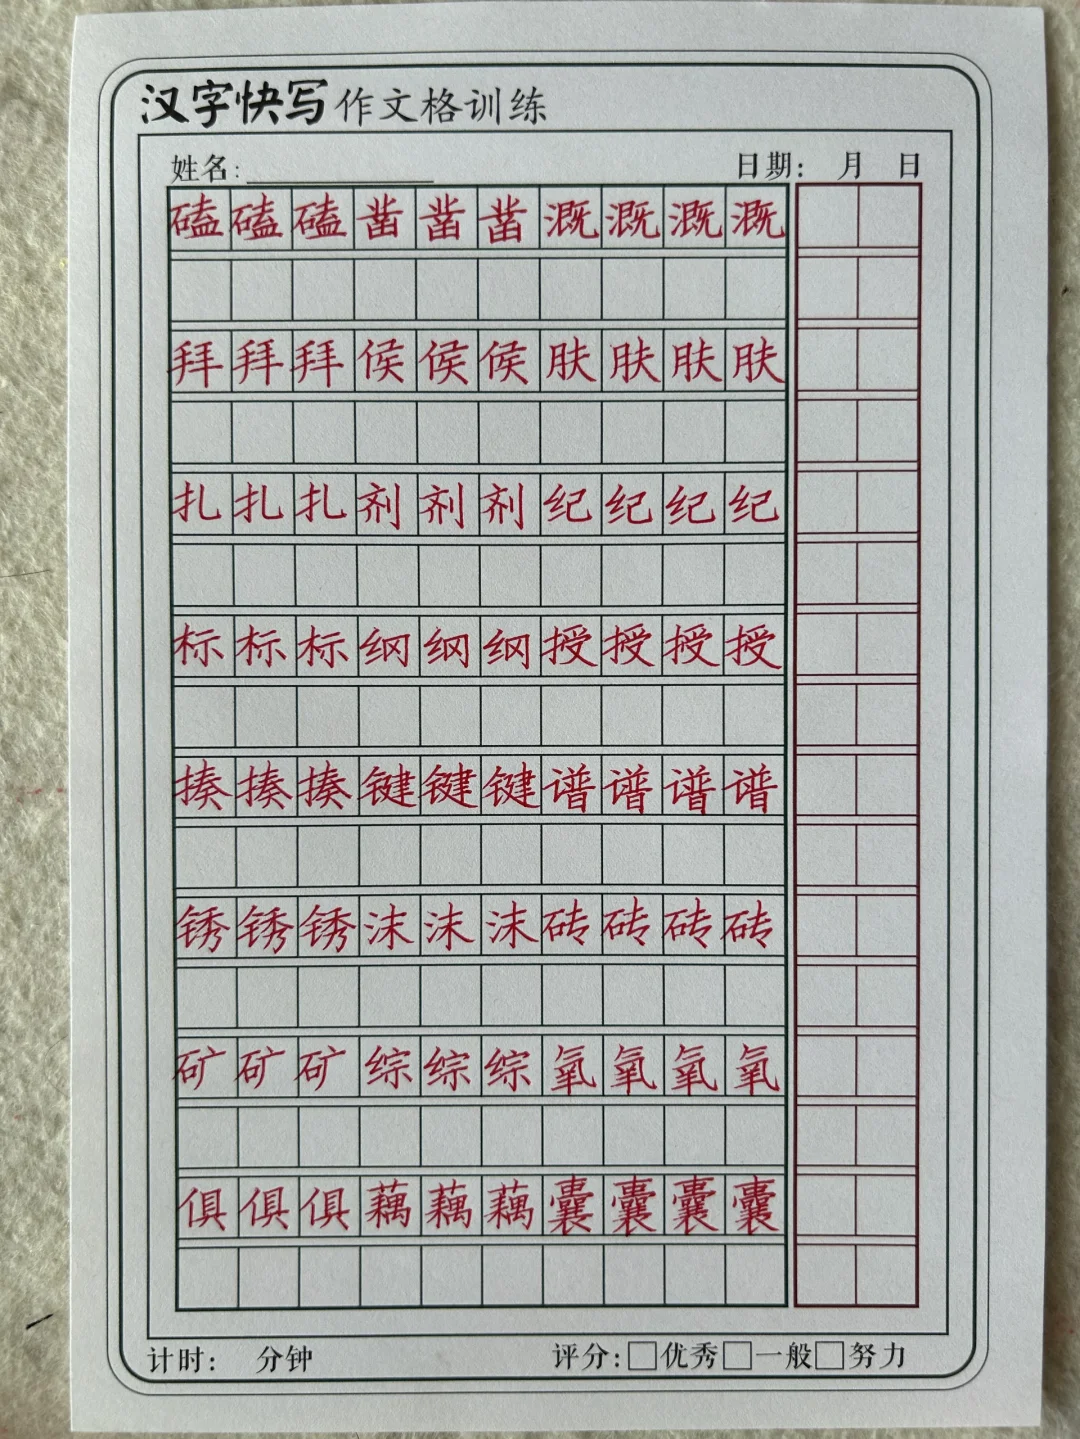 汉字快写作文格训练
姓名: 日期: 月 日
磕磕磕凿凿凿溉溉溉溉
拜拜拜侯侯侯肤肤肤肤
扎扎扎剂剂剂纪纪纪纪
标标标纲纲纲授授授授
揍揍揍键键键谱谱谱谱
锈锈锈沫沫沫砖砖砖砖
矿矿矿综综综氧氧氧氧
俱俱俱藕藕藕囊囊囊囊
计时: 分钟 评分:□优秀□一般□努力